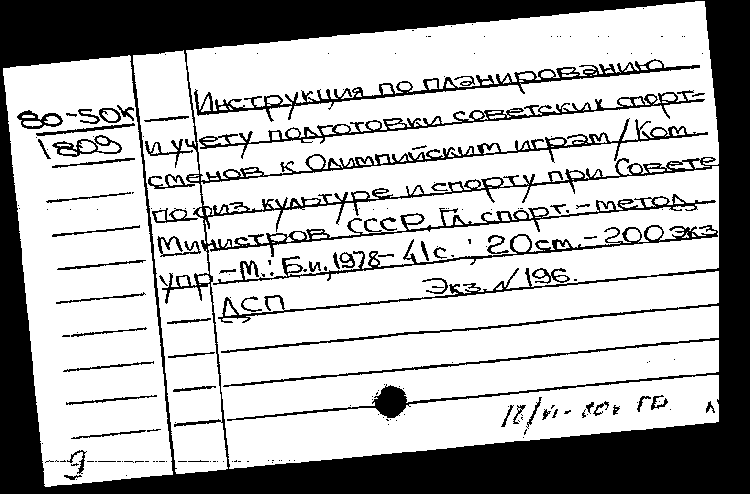 80-50к
1809
Инструкция по планированию
и учету подготовки советских спорт-
сменов к Олимпийским играм / Ком.
по физ. культуре и спорту при Совете
Министров СССР, Гл. спорт.-метод.
упр. - М.: Б.и., 1978 - 41 с. ; 20 см. - 200 экз
ДСП Экз. № 196.
18/VI-80г
9